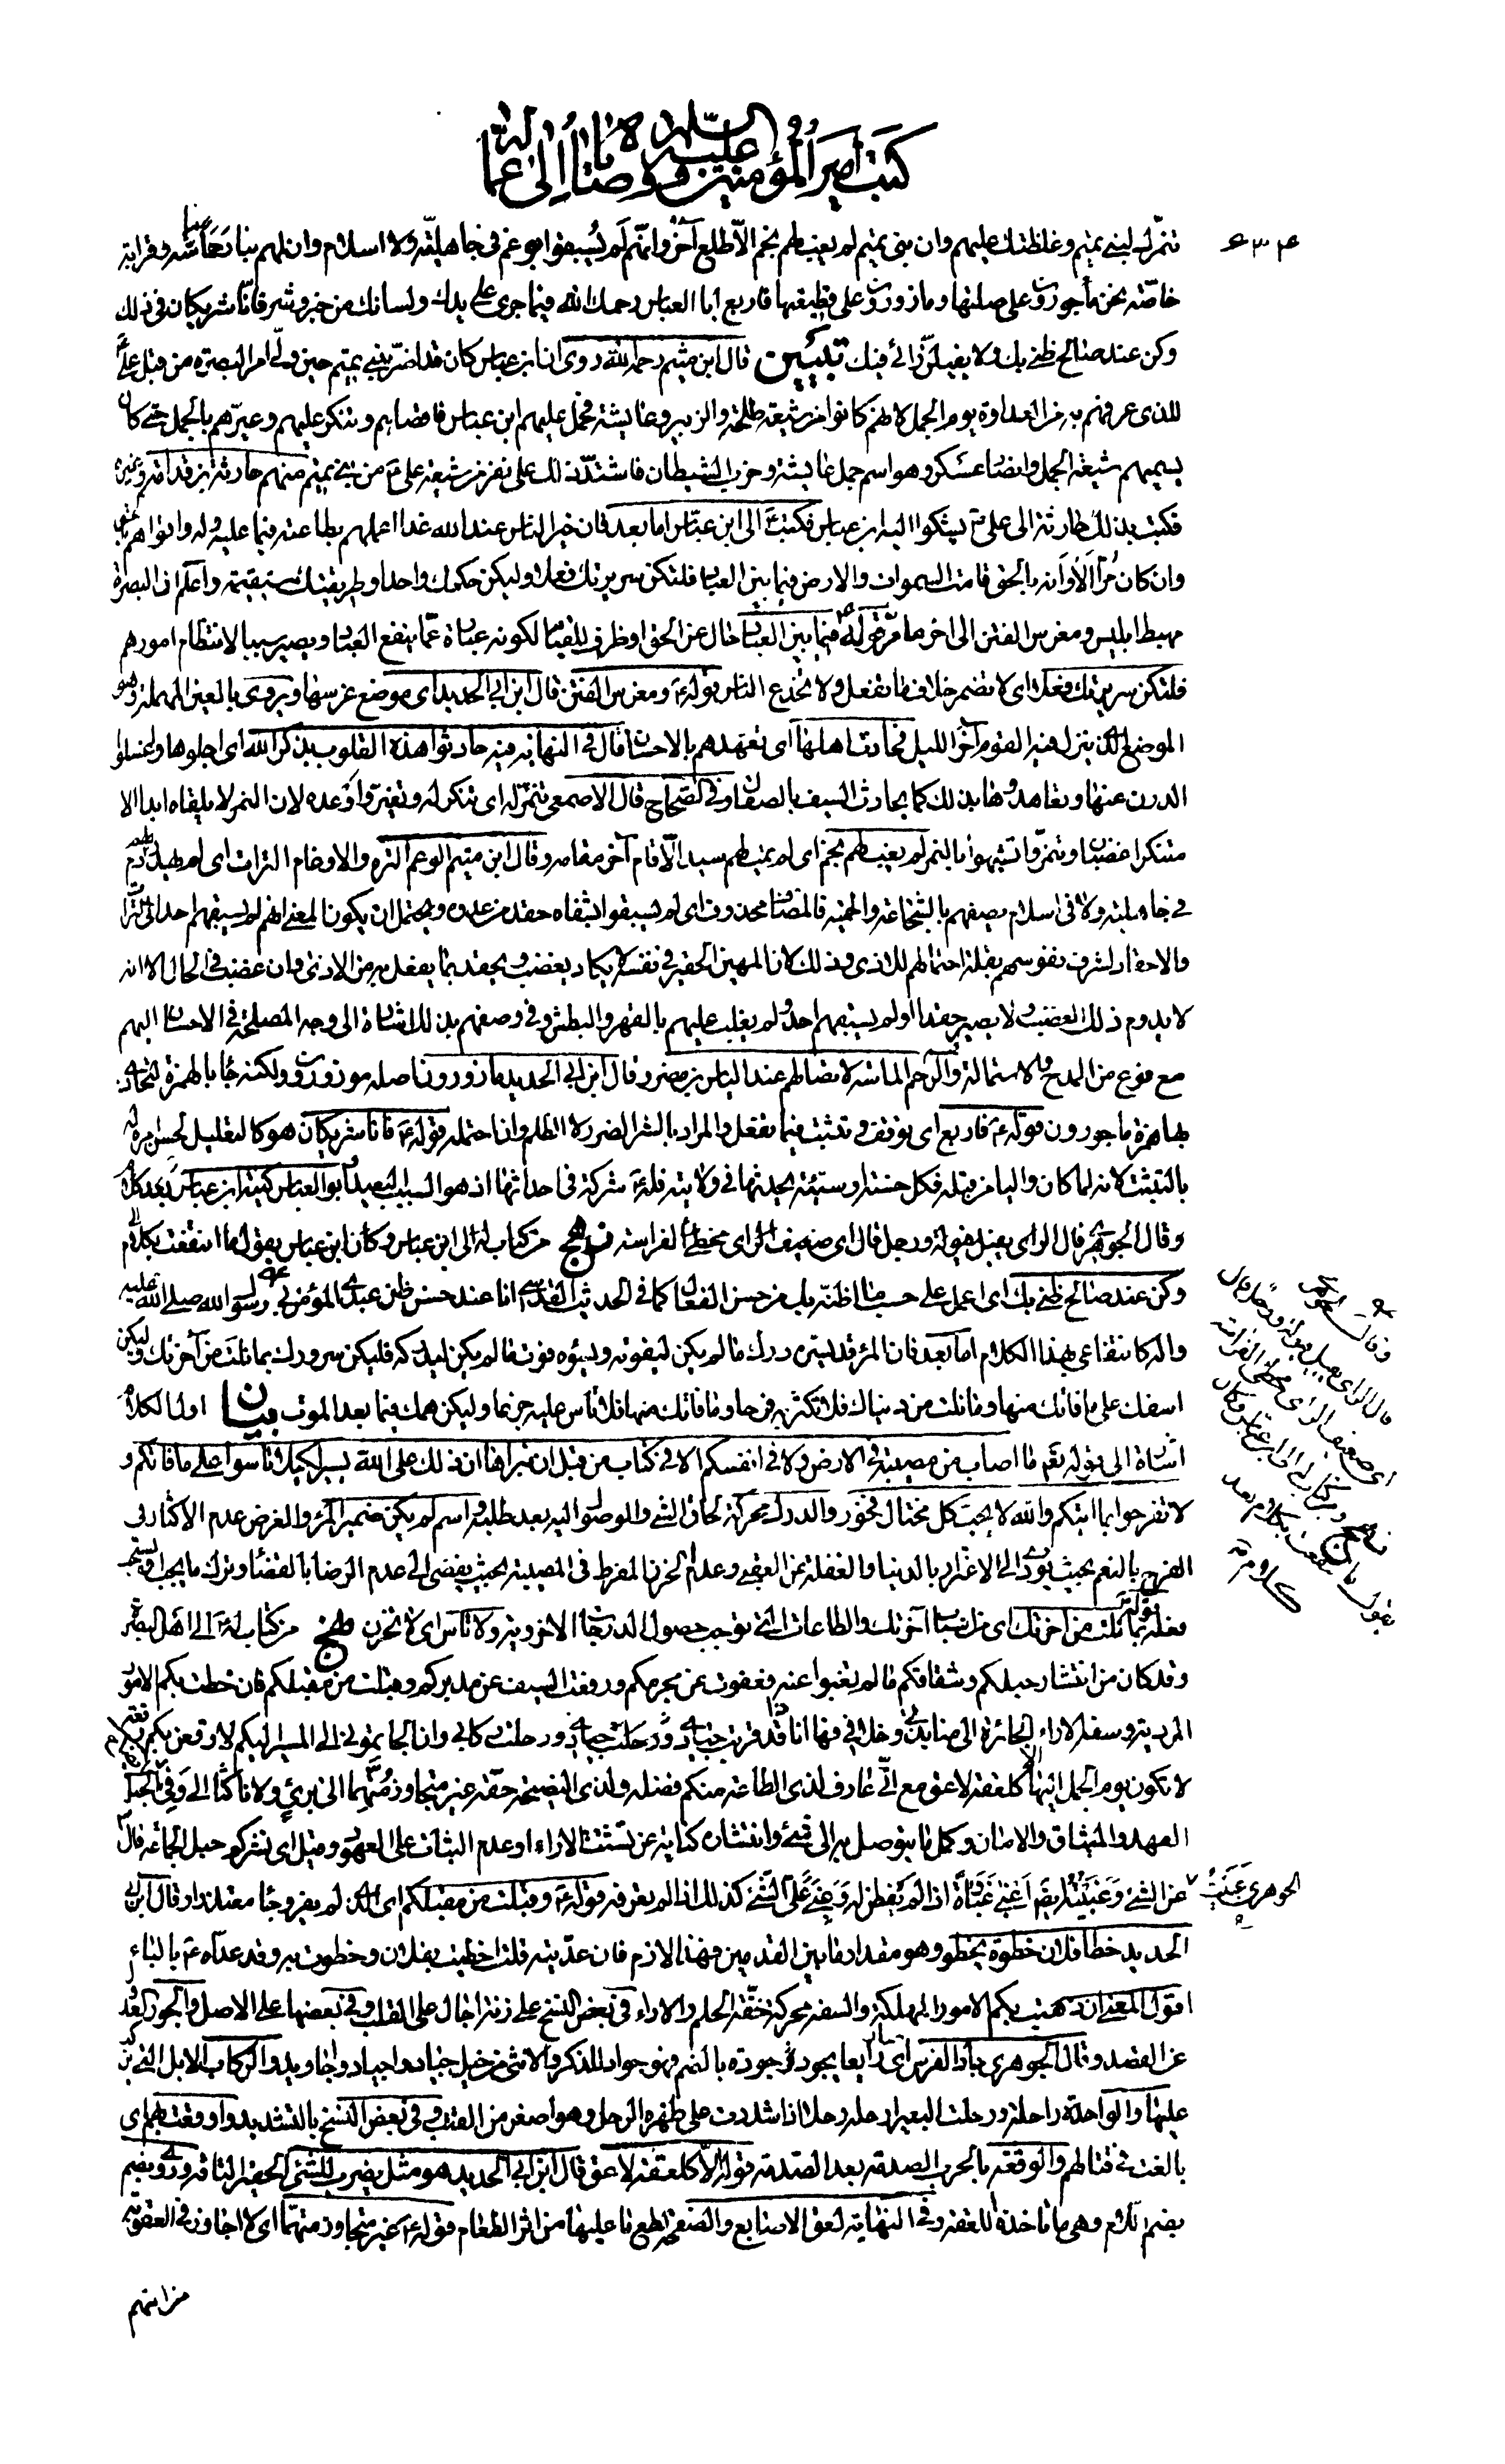 كتب أمير المؤمنين عليه السلام ووصاياه إلى عماله
تنمرك لبنى تميم وغلظتك عليهم وان بنى تميم لم يغب لهم نجم الّا طلع آخر وانّهم لم يُسبقوا بوغم فى جاهليّة ولا اسلام وان لهم بنا رحما ماسّة وقرابة
خاصّة نحن مأجورون على صلتها ومازورون على قطيعتها فاربع ابا العباس رحمك الله فيما جرى على يدك ولسانك من خير وشر فانّا شريكان فى ذلك
وكن عند صالح ظنى بك ولا يفيلنّ رائى فيك تبيين قال ابن ميثم رحمه الله روى ان ابن عباس كان قد اضرّ ببنى تميم حين ولى امر البصرة من قبل علىّ
للذى عرفهم به من العداوة يوم الجمل لانهم كانوا من شيعة طلحة والزبير وعايشة فحمل عليهم ابن عباس فاقصاهم وتنكر عليهم وعيّرهم بالجمل حتى كان
يسميهم شيعة الجمل وانصار عسكر وهو اسم جمل عايشة وحزب الشيطان فاشتدّ ذلك على نفر من شيعة علىّ من بنى تميم منهم حارثة بن قدامة وغيره
فكتب بذلك حارثة الى على يشكوا اليه ابن عباس فكتب الى ابن عبّاس اما بعد فان خير الناس عند الله غدا اعملهم بطاعته فيما عليه وله واقواهم
وان كان مُرّا الا وانه بالحق قامت السموات والارض فيما بين العباد فلتكن سريرتك فعلا وليكن حكمك واحدا وطريقتك مستقيمة واعلم ان البصرة
مهبط ابليس ومغرس الفتن الى اخر ما مرّ قوله فيما بين العباد حال عن الحق او ظرف للقيام لكونه عبارة عمّا ينفع العباد ويصير سببا لانتظام امورهم
فلتكن سريرتك فعلا اى لا تضمر خلاف ما تفعل ولا تخدع الناس قوله ومغرس الفتن قال ابن ابى الحديد اى موضع غرسها ويروى بالعين المهملة وهو
الموضع الذى ينزل فيه القوم آخر الليل فحادث اهلها اى تعهدهم بالاحسان قال فى النهاية فيه حادثوا هذه القلوب بذكر الله اى اجلوها واغسلوا
الدرن عنها وتعاهدوها بذلك كما يحادث السيف بالصقال وفى الصّحاح قال الاصمعى تنمّر له اى تنكر له وتغيّر واوعده لان النمر لا يلقاه ابدا الا
متنكرا غضبان وتنمّروا تشبهوا بالنمر لم يغب لهم نجم اى لم يمت لهم سيد الّا قام آخر مقامه وقال ابن ميثم الوغم الترة والاوغام الترات اى لم يهدر لهم دم
فى جاهلية ولا فى اسلام يصفهم بالشجاعة والحمية فالمضاف محذوف اى لم يسبقوا بشفاء حقد من عدو ويحتمل ان يكون المعنى انهم لم يسبقهم احد الى الترات
والاحقاد لشرف نفوسهم بقلة احتمالهم للاذى وذلك لان المهين الحقير فى نفسه لا يكاد يغضب ويحقد بما يفعل به من الاذى وان غضب فى الحال الا انه
لا يدوم ذلك الغضب ولا يصير حقدا او لم يسبقهم احد ولم يغلب عليهم بالقهر والبطش وفى وصفهم بذلك اشارة الى وجه المصلحة فى الاحسان اليهم
مع نوع من المدح والاستمالة والرحم الماسّة لاتصالهم عند الياس بن مضر وقال ابن ابى الحديد مازورون اصله موزورون ولكنه جاء بالهمزة لتحاذى
بها همزة ماجورون قوله فاربع اى توقف وتثبت فيما تفعل والمراد بالشر الضرر لا الظلم وان احتمله قوله فانا شريكان هو كالتعليل لحسن امره له
بالتثبت لانه لما كان واليا من قبله فكل حسنة او سيئة يحدثها فى ولايته فله شركة فى احداثها اذ هو السبب البعيد ابو العباس كنية ابن عباس
وقال الجوهرى فال الراى يفيل فيولة ورجل فال اى ضعيف الراى مخطئ الفراسة نهج من كتاب له الى ابن عباس وكان ابن عباس يقول ما انتفعت بكلام
وكن عند صالح ظنى بك اى اعمل على حسب ما اظنّه بك من حسن الفعال كما فى الحديث القدسى انا عند حسن ظن عبدى المؤمن بى رسول الله صلى الله عليه
واله كانتفاعى بهذا الكلام اما بعد فان المرء قد يسره درك ما لم يكن ليفوته ويسوءه فوت ما لم يكن ليدركه فليكن سرورك بما نلت من آخرتك وليكن
اسفك على ما فاتك منها وما نلت من دنياك فلا تكثر به فرحا وما فاتك منها فلا تأس عليه جزعا وليكن همك فيما بعد الموت بيان اول الكلام
اشارة الى قوله تعم ما اصاب من مصيبة فى الارض ولا فى انفسكم الا فى كتاب من قبل ان نبراها ان ذلك على الله يسير لكيلا تأسوا على ما فاتكم و
لا تفرحوا بما اتيكم والله لا يحب كل مختال فخور والدرك محركة لحاق الشئ والوصول اليه بعد طلبه واسم لم يكن ضمير المرء والغرض عدم الاكثار فى
الفرح بالنعم بحيث يؤدى الى الاغترار بالدنيا والغفلة عن العقبى وعدم الحزن المفرط فى المصيبة بحيث يفضى الى عدم الرضا بالقضاء وترك ما يجب او يستحب
فعله قوله بما نلت من آخرتك اى من اسباب آخرتك والطاعات التى توجب حصول الدرجات الاخروية ولا تأس اى لا تحزن نهج من كتاب له الى اهل البصرة
وقد كان من انتشار حبلكم وشقاقكم ما لم تغبوا عنه فعفوت عن مجرمكم ورفعت السيف عن مدبركم وقبلت من مقبلكم فان خطت بكم الامور
المردية وسفه الاراء الجائرة الى منابذتى وخلافى فها انا ذا قد قربت جيادى ورحلت ركابى وان الجاتمونى الى المسير اليكم لاوقعن بكم وقعة
لا يكون يوم الجمل اليها الا كلعقة لاعق مع انّى عارف لذى الطاعة منكم فضله ولذى النصيحة حقّه غير متجاوز متّهما الى برئ ولا ناكثا الى وفىّ الحبل
العهد والميثاق والامان وكل ما يتوصل به الى شئ وانتشاره كناية عن تشتت الاراء او عدم الثبات على العهود وقيل اى نشركم حبل الجماعة قال
الجوهرى غبيت عن الشئ وغبيته ايضا اغبى غباوة اذا لم يفطن له وغبى علىّ الشئ كذلك اذا لم يعرفه قوله وقبلت من مقبلكم اى الذى لم يفر وجاء معتذرا وقال ابن ابى
الحديد خطا فلان خطوة يخطو وهو مقدار ما بين القدمين فهذا لازم فان عدّيته قلت اخطيت بفلان وخطوت به وقد عدّاه بالباء
اقول المعنى ان ذهبت بكم الامور المهلكة والسفه محركة خفّة الحلم والاراء فى بعض النسخ على زنة اجال على القلب وفى بعضها على الاصل والجور العدول
عن القصد وقال الجوهرى جاد الفرس اى صار رايعا يجود جودة بالضم فهو جواد للذكر والانثى من خيل جياد واجياد واجاويد والركاب الابل التى يسار
عليها والواحدة راحلة ورحلت البعير ارحله رحلا اذا شددت على ظهره الرحل وهو اصغر من القتب وفى بعض النسخ بالتشديد واوقعت بهم اى
بالغت فى قتالهم والوقعة بالحرب الصدمة بعد الصّدمة قوله الا كلعقة لاعق قال ابن ابى الحديد هو مثل يضرب للشئ الحقير التافه وروى بضم
بضم اللام وهى ما تاخذه الملعقة وفى النهاية لعق الاصابع والصحفة لطع ما عليها من اثر الطعام قوله غير متجاوز متهما اى لا اجاوز فى العقوبة
من المتهم
وقال الجوهرى
فال الراى يفيل فيولة ورجل فال
اى ضعيف الراى مخطئ الفراسة
نهج ومن كتاب له الى ابن عباس وكان
يقول ما انتفعت بكلام بعد
كلام